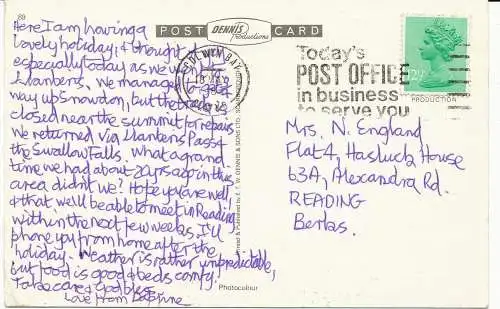 89
POST DENNIS Productions CARD
Here I am having a
lovely holiday, & thought of
especially today as we went
Llanberis. We managed to get
way up Snowdon, but the
closed near the summit for repairs
we returned via Llanberis Pass &
the Swallow Falls. What a grand
time we had about 20 yrs ago in this
area didn't we? Hope you are well,
& that we'll be able to meet in Reading
within the next few weeks. I'll
phone you from home after the
holiday. Weather is rather unpredictable,
but food is good & beds comfy.
Take care & God bless
Love from
COLWYN BAY
Today's
POST OFFICE
in business
to serve you
12½
PRODUCTION
Mrs. N. England
Flat 4, Hasluck House
63A, Alexandra Rd.
READING
Berks.
Printed & Published by E. T. W. DENNIS & SONS LTD.
Photocolour